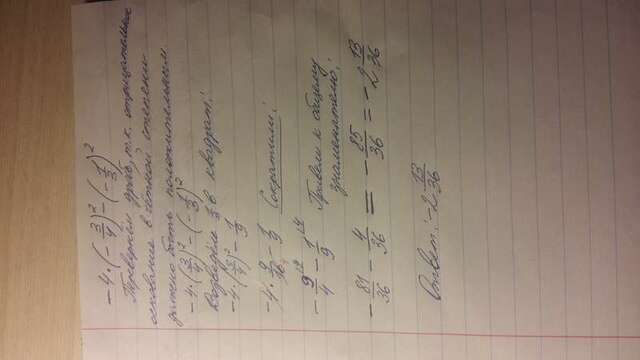 -4·(-3/4)²-(-1/3)²
Перевернём дробь, т.к. отрицательное
основание в чётной степени
должно быть положительным
-4·(3/4)²-(-1/3)²
Возведём 1/3 в квадрат:
-4·(3/4)²-1/9
-4·9/16-1/9 Сократили:
-9/4-1/9 Привели к общему
знаменателю:
-81/36-4/36=-85/36=-2 13/36
Ответ: -2 13/36